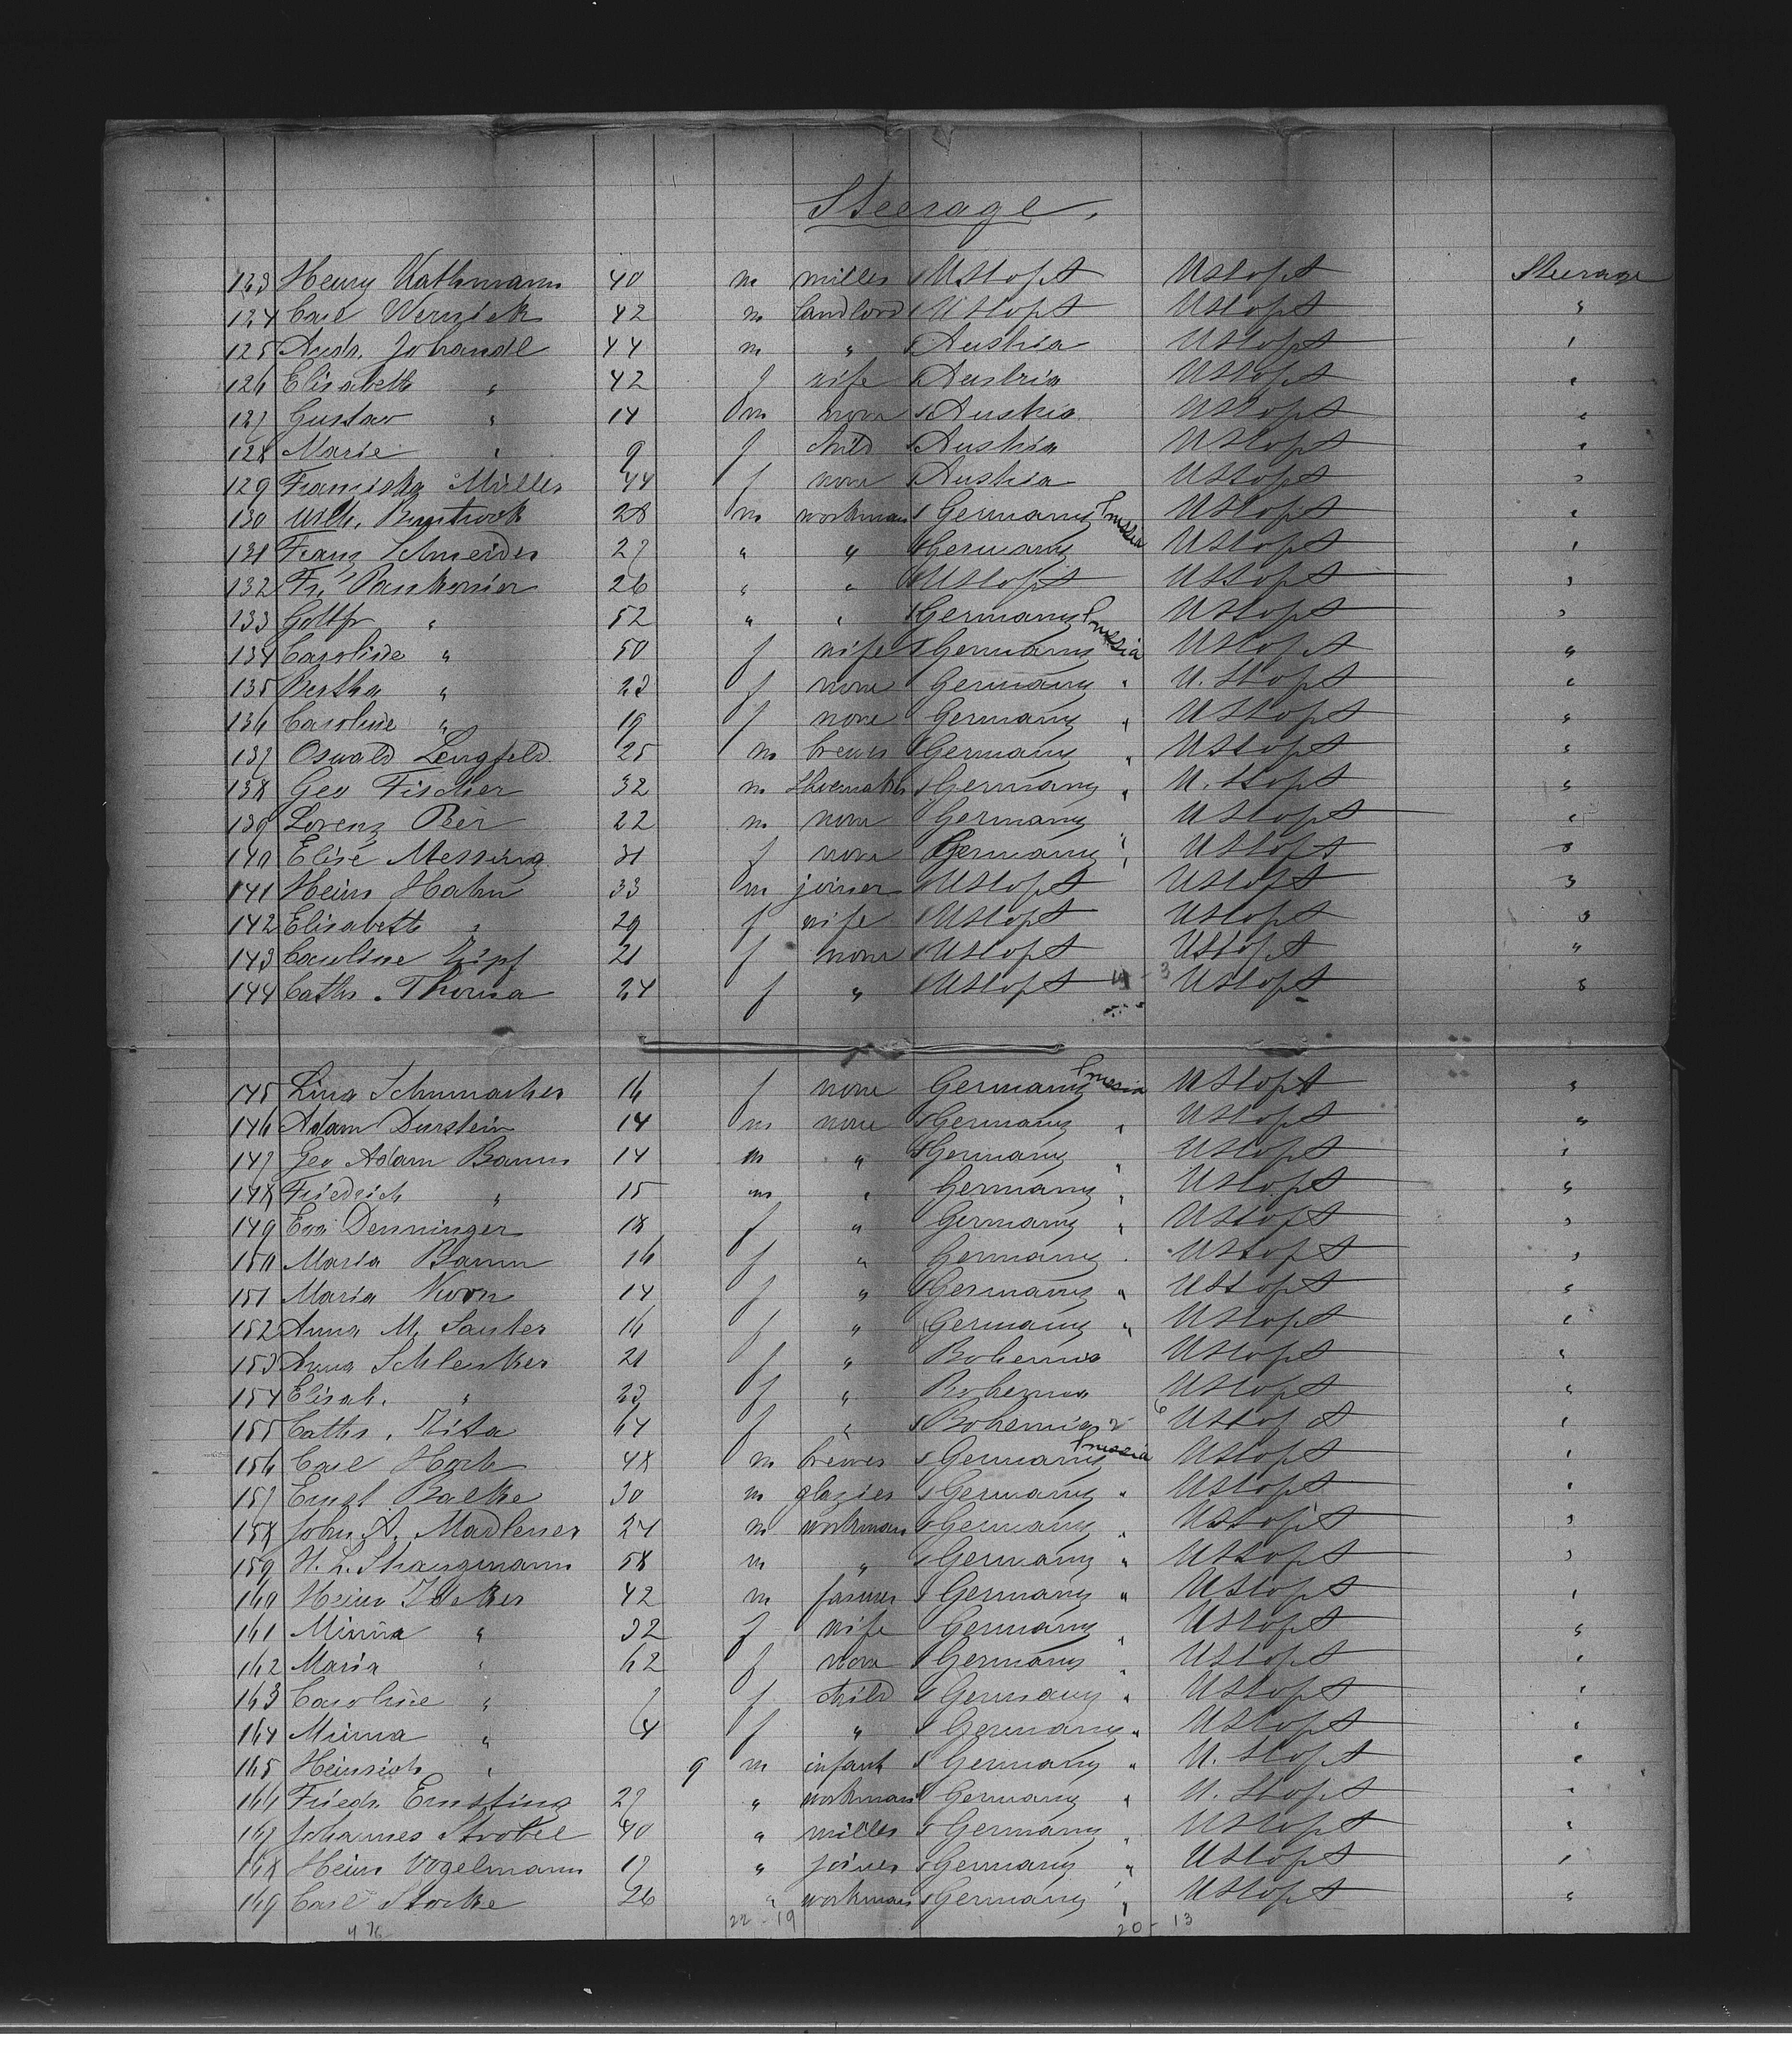 Steerage.
123 Henry Kathmann 40 m miller U St of A U St of A Steerage
124 Carl Wernick 42 m landlord U St of A U St of A "
125 Andr. Johandl 44 m " Austria U St of A "
126 Elisabeth " 42 f wife Austria U St of A "
127 Gustav " 14 m none Austria U St of A "
128 Marie " 9 f child Austria U St of A "
129 Franziska Müller 44 f none Austria U St of A "
130 28 m workman Germany Prussia U St of A "
131 Franz Schneider 27 " " Germany U St of A "
132 Fr. Pankonier 26 " " U St of A U St of A "
133 Gottfr " 52 " " Germany Prussia U St of A "
134 Caroline " 50 f wife Germany U St of A "
135 Bertha " 23 f none Germany " U. St of A "
136 Caroline " 19 f none Germany " U St of A "
137 Oswald Lengfeld 25 m brewer Germany " U St of A "
138 Geo Fischer 32 m Shoemaker Germany " U. St of A "
139 Lorenz Beir 22 m none Germany " U St of A "
140 Elise Messing 31 f none Germany " U St of A "
141 Heinr Hahn 33 m joiner U St of A U St of A "
142 Elisabeth " 29 f wife U St of A U St of A "
143 Caroline Zipf 21 f none U St of A U St of A "
144 Cathr. Thoma 24 f " U St of A U St of A "
145 Lina Schumacher 16 f none Germany Prussia U St of A "
146 Adam Durstein 14 m none Germany " U St of A "
147 Geo Adam Baum 14 m " Germany " U St of A "
148 Friedrich " 15 m " Germany " U St of A "
149 Eva Denninger 18 f " Germany " U St of A "
150 Maria Baum 16 f " Germany " U St of A "
151 Maria Korn 14 f " Germany " U St of A "
152 Anna M. Sauter 16 f " Germany " U St of A "
153 Anna Schlenker 21 f " Bohemia U St of A "
154 Elisab. " 23 f " Bohemia U St of A "
155 Cathr. Zita 64 f " Bohemia U St of A "
156 Carl Horb 48 m brewer Germany Prussia U St of A "
157 Ernst Balke 30 m glazier Germany " U St of A "
158 John A. Madlener 24 m workman Germany " U St of A "
159 H. L. Strangmann 58 m " Germany " U St of A "
160 Heinr 42 m farmer Germany " U St of A "
161 Minna " 32 f wife Germany " U St of A "
162 Maria " 62 f none Germany " U St of A "
163 Caroline " f child Germany " U St of A "
164 Minna " 4 f " Germany " U St of A "
165 Heinrich " 9 m infant Germany " U. St of A "
166 Friedr. Ernsting 27 " workman Germany " U. St of A "
167 Johannes Strobel 40 " miller Germany " U St of A "
168 Heinr Vogelmann 17 " joiner Germany " U St of A "
169 Carl Storke 26 " workman Germany " U St of A "
22 - 19 20 - 13